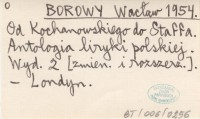 o
BOROWY Wacław 1954.
Od Kochanowskiego do Staffa.
Antologia liryki polskiej.
Wyd. 2 [zmien. i rozszerz.].
- Londyn.
BT/006/0296